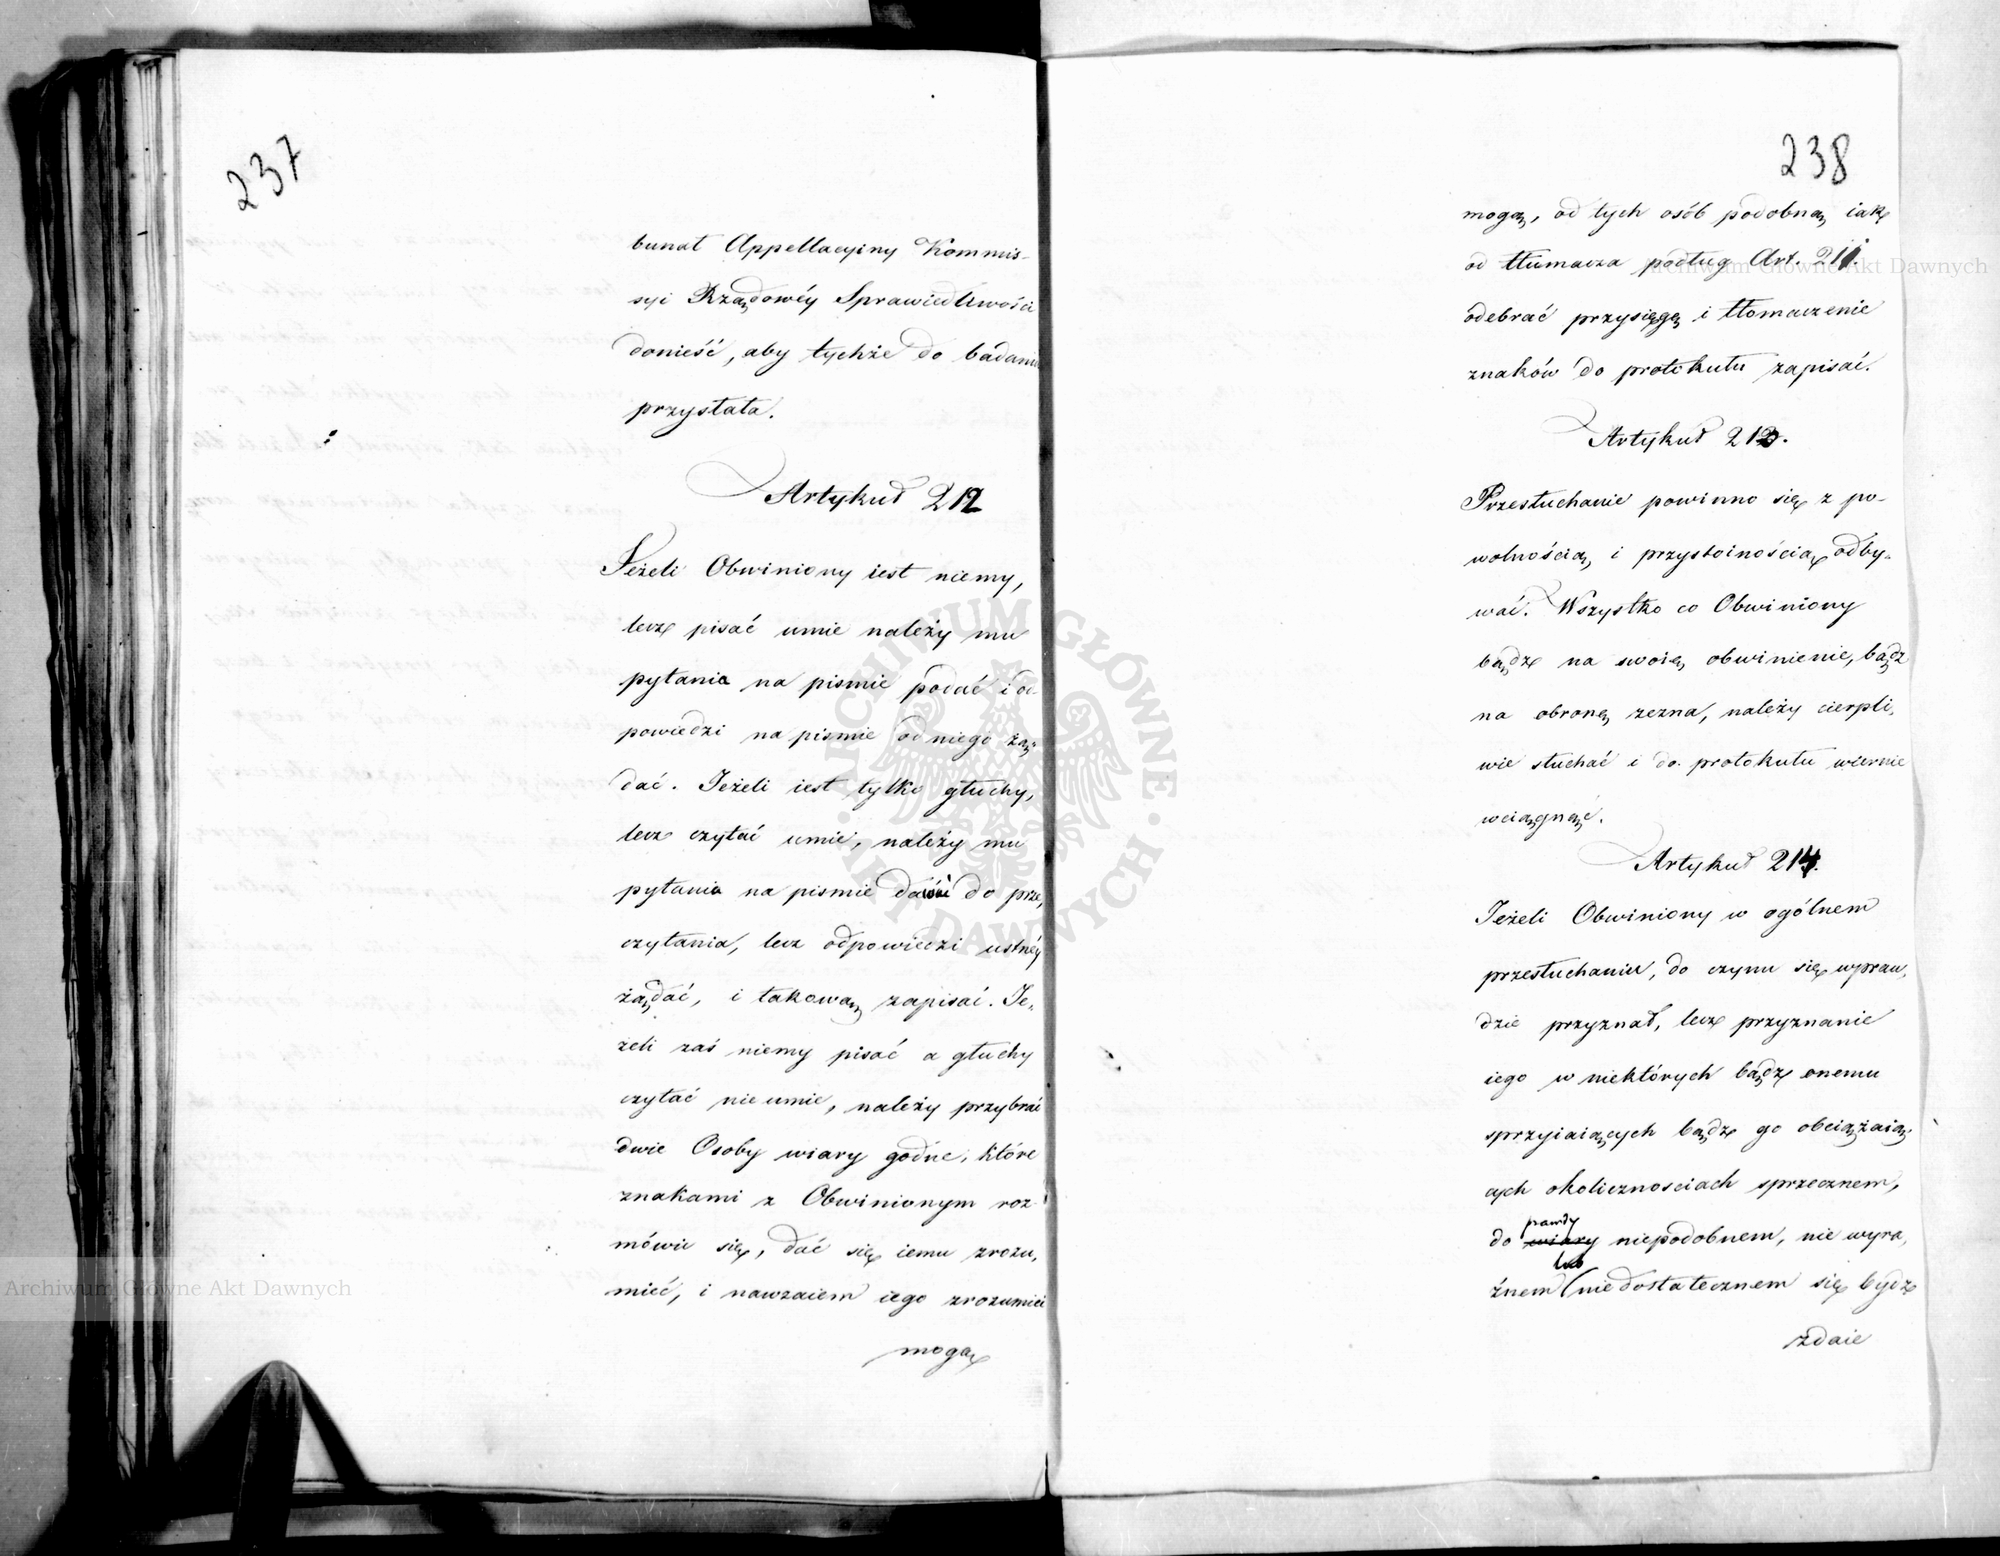 237
bunał Appellacyiny Kommis-
syi Rządowéy Sprawiedliwości
donieść, aby tychże do badania
przystała.
Artykuł 212
Jeżeli Obwiniony iest niemy,
lecz pisać umie należy mu
pytania na pismie podać i od-
powiedzi na pismie od niego żą-
dać. Jeżeli iest tylko głuchy,
lecz czytać umie, należy mu
pytania na pismie do prze-
czytania, lecz odpowiedzi ustnéy
żądać, i takową zapisać. Je-
żeli zaś niemy pisać a głuchy
czytać nie umie, należy przybrać
dwie Osoby wiary godne, które
znakami z Obwinionym roz-
mówić się, dać się iemu zrozu-
mieć, i nawzaiem iego zrozumieć
mogą
238
mogą, od tych osób podobną iak
od tłumacza podług Art. 211.
odebrać przysięgę i tłomaczenie
znaków do protokułu zapisać.
Artykuł 213.
Przesłuchanie powinno się z po-
wolnością i przystoinością odby-
wać. Wszystko co Obwiniony
bądz na swoie obwinienie, bądz
na obronę zezna, należy cierpli-
wie słuchać i do protokułu wiernie
wciągnąć.
Artykuł 214.
Jeżeli Obwiniony w ogólnem
przesłuchaniu, do czynu się wpraw-
dzie przyznał, lecz przyznanie
iego w niektórych bądz onemu
sprzyiaiących bądz go obciążaią-
cych okolicznosciach sprzecznem,
prawdy
do wiary niepodobnem, nie wyra-
lub
źnem niedostatecznem się bydz
zdaie
ARCHIWUM GŁÓWNE AKT DAWNYCH
Archiwum Główne Akt Dawnych
Archiwum Główne Akt Dawnych